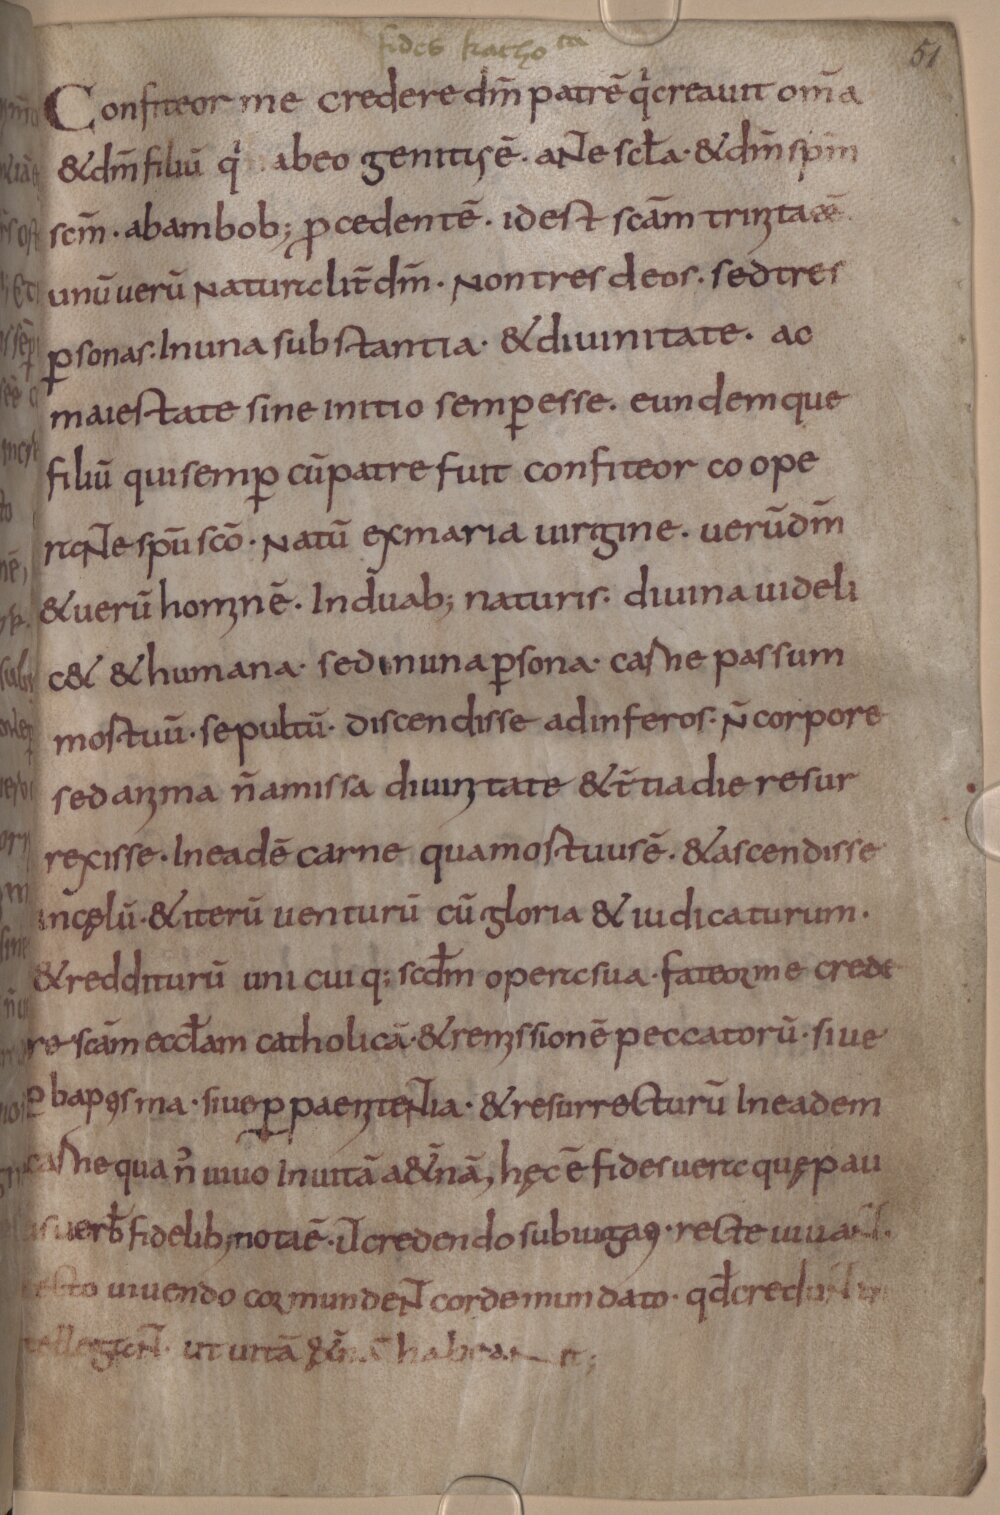 fides katho
51
Confiteor me credere dm̄ patrē qͥ creauit om̄a
& dm̄ filiū qͥ abeo genitus ē. ante scl̄a. & dm̄ sp̄m
scm̄. abambob; ꝓcedentē. idest scām trinitatē
unū uerū naturalit̄ dm̄. Non tres deos. sed tres
ꝑsonas. In una substantia. & diuinitate. ac
maiestate sine initio semꝑ esse. eundemque
filiū qui semꝑ cū patre fuit confiteor coope
rante sp̄u scō. Natū ex maria uirgine. uerū dm̄
& uerū hominē. In duab; naturis. diuina uideli
c& & humana. sed in una ꝑsona. carne passum
mortuū. sepultū. discendisse ad inferos. n̄ corpore
sed anima n̄ amissa diuinitate & t̄tia die resur
rexisse. In eadē carne qua mortuus ē. & ascendisse
in cęlū. & iterū uenturū cū gloria & iudicaturum.
& redditurū uni cui q; scdm̄ opera sua. fateor me crede
re scām eccl̄am catholicā. & remissionē peccatorū. siue
ꝑ baptisma. siue ꝑ paenitentia. & resurrecturū In eadem
carne qua n̄c uiuo In uitā a&̄nā, hęc ē fides uera quę pau
cis uerb̄ fidelib; nota ē. ut credendo subiugati. recte uiuant.
recto uiuendo cor mundent corde mundato. qd̄ credunt in
tellegant. ut uitā &̄nā habeant;